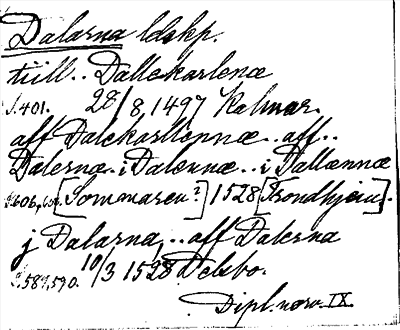 Dalarna ldskp.
tiill.. Dallekarlenæ
S.401. 28/8, 1497 Kalmar.
aff Dalekarllonnæ.. aff..
Dalernæ.. i Dalennæ.. i Dallænnæ
S.606, [Sommaren?] 1528 [Trondhjem].
j Dalarna,.. aff Dalerna
S.589,590. 10/3 1528 Delsbo.
Dipl. norv. IX.